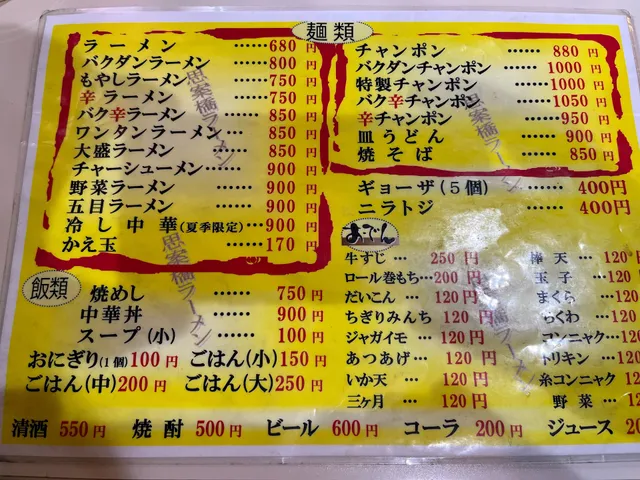 麺類
ラーメン ……680円
バクダンラーメン ……800円
もやしラーメン ……750円
辛ラーメン ……750円
バク辛ラーメン ……850円
ワンタンラーメン… 850円
大盛ラーメン ……850円
チャーシューメン ……900円
野菜ラーメン ……900円
五目ラーメン ……900円
冷し中華(夏季限定)…900円
かえ玉 ……170円
チャンポン …… 880円
バクダンチャンポン …… 1000円
特製チャンポン …… 1000円
バク辛チャンポン …… 1050円
辛チャンポン …… 950円
皿うどん …… 900円
焼そば …… 850円
ギョーザ(5個) …… 400円
ニラトジ …… 400円
おでん
牛すじ … 250円
ロール巻もち…200円
だいこん … 120円
ちぎりみんち 120円
ジャガイモ … 120円
あつあげ … 120円
いか天 … 120円
三ヶ月 … 120円
棒天 … 120円
玉子 … 120円
まくら … 120円
ちくわ … 120円
コンニャク…120円
トリキン … 120円
糸コンニャク 120円
野菜 … 120円
飯類
焼めし …… 750円
中華丼 …… 900円
スープ(小) …… 100円
おにぎり(1個)100円 ごはん(小)150円
ごはん(中)200円 ごはん(大)250円
清酒 550円 焼酎 500円 ビール 600円 コーラ 200円 ジュース
思案橋ラーメン
思案橋ラーメン
思案橋ラーメン
思案橋ラーメン